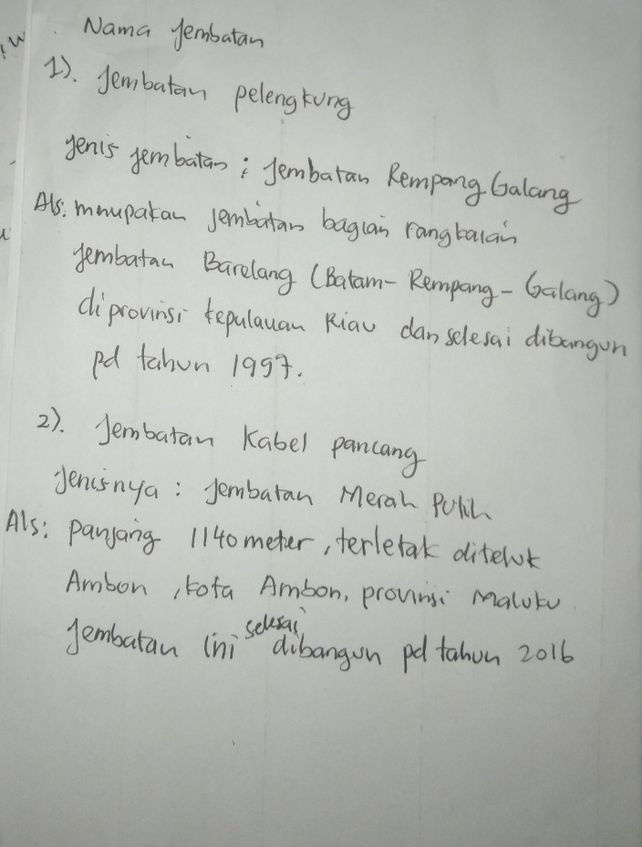 Nama Jembatan
1). Jembatan pelengkung
Jenis jembatan : Jembatan Rempang Galang
Als: merupakan jembatan bagian rangkaian
jembatan Barelang (Batam - Rempang - Galang)
di provinsi kepulauan Riau dan selesai dibangun
pd tahun 1997.
2). Jembatan Kabel pancang
Jenisnya : Jembatan Merah Putih
Als: panjang 1140 meter, terletak diteluk
Ambon, kota Ambon, provinsi Maluku
Jembatan ini selesai dibangun pd tahun 2016